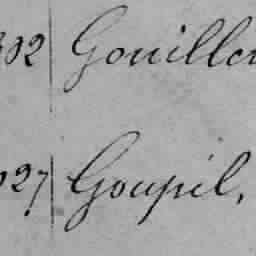 302 Gouillo
027 Goupil,